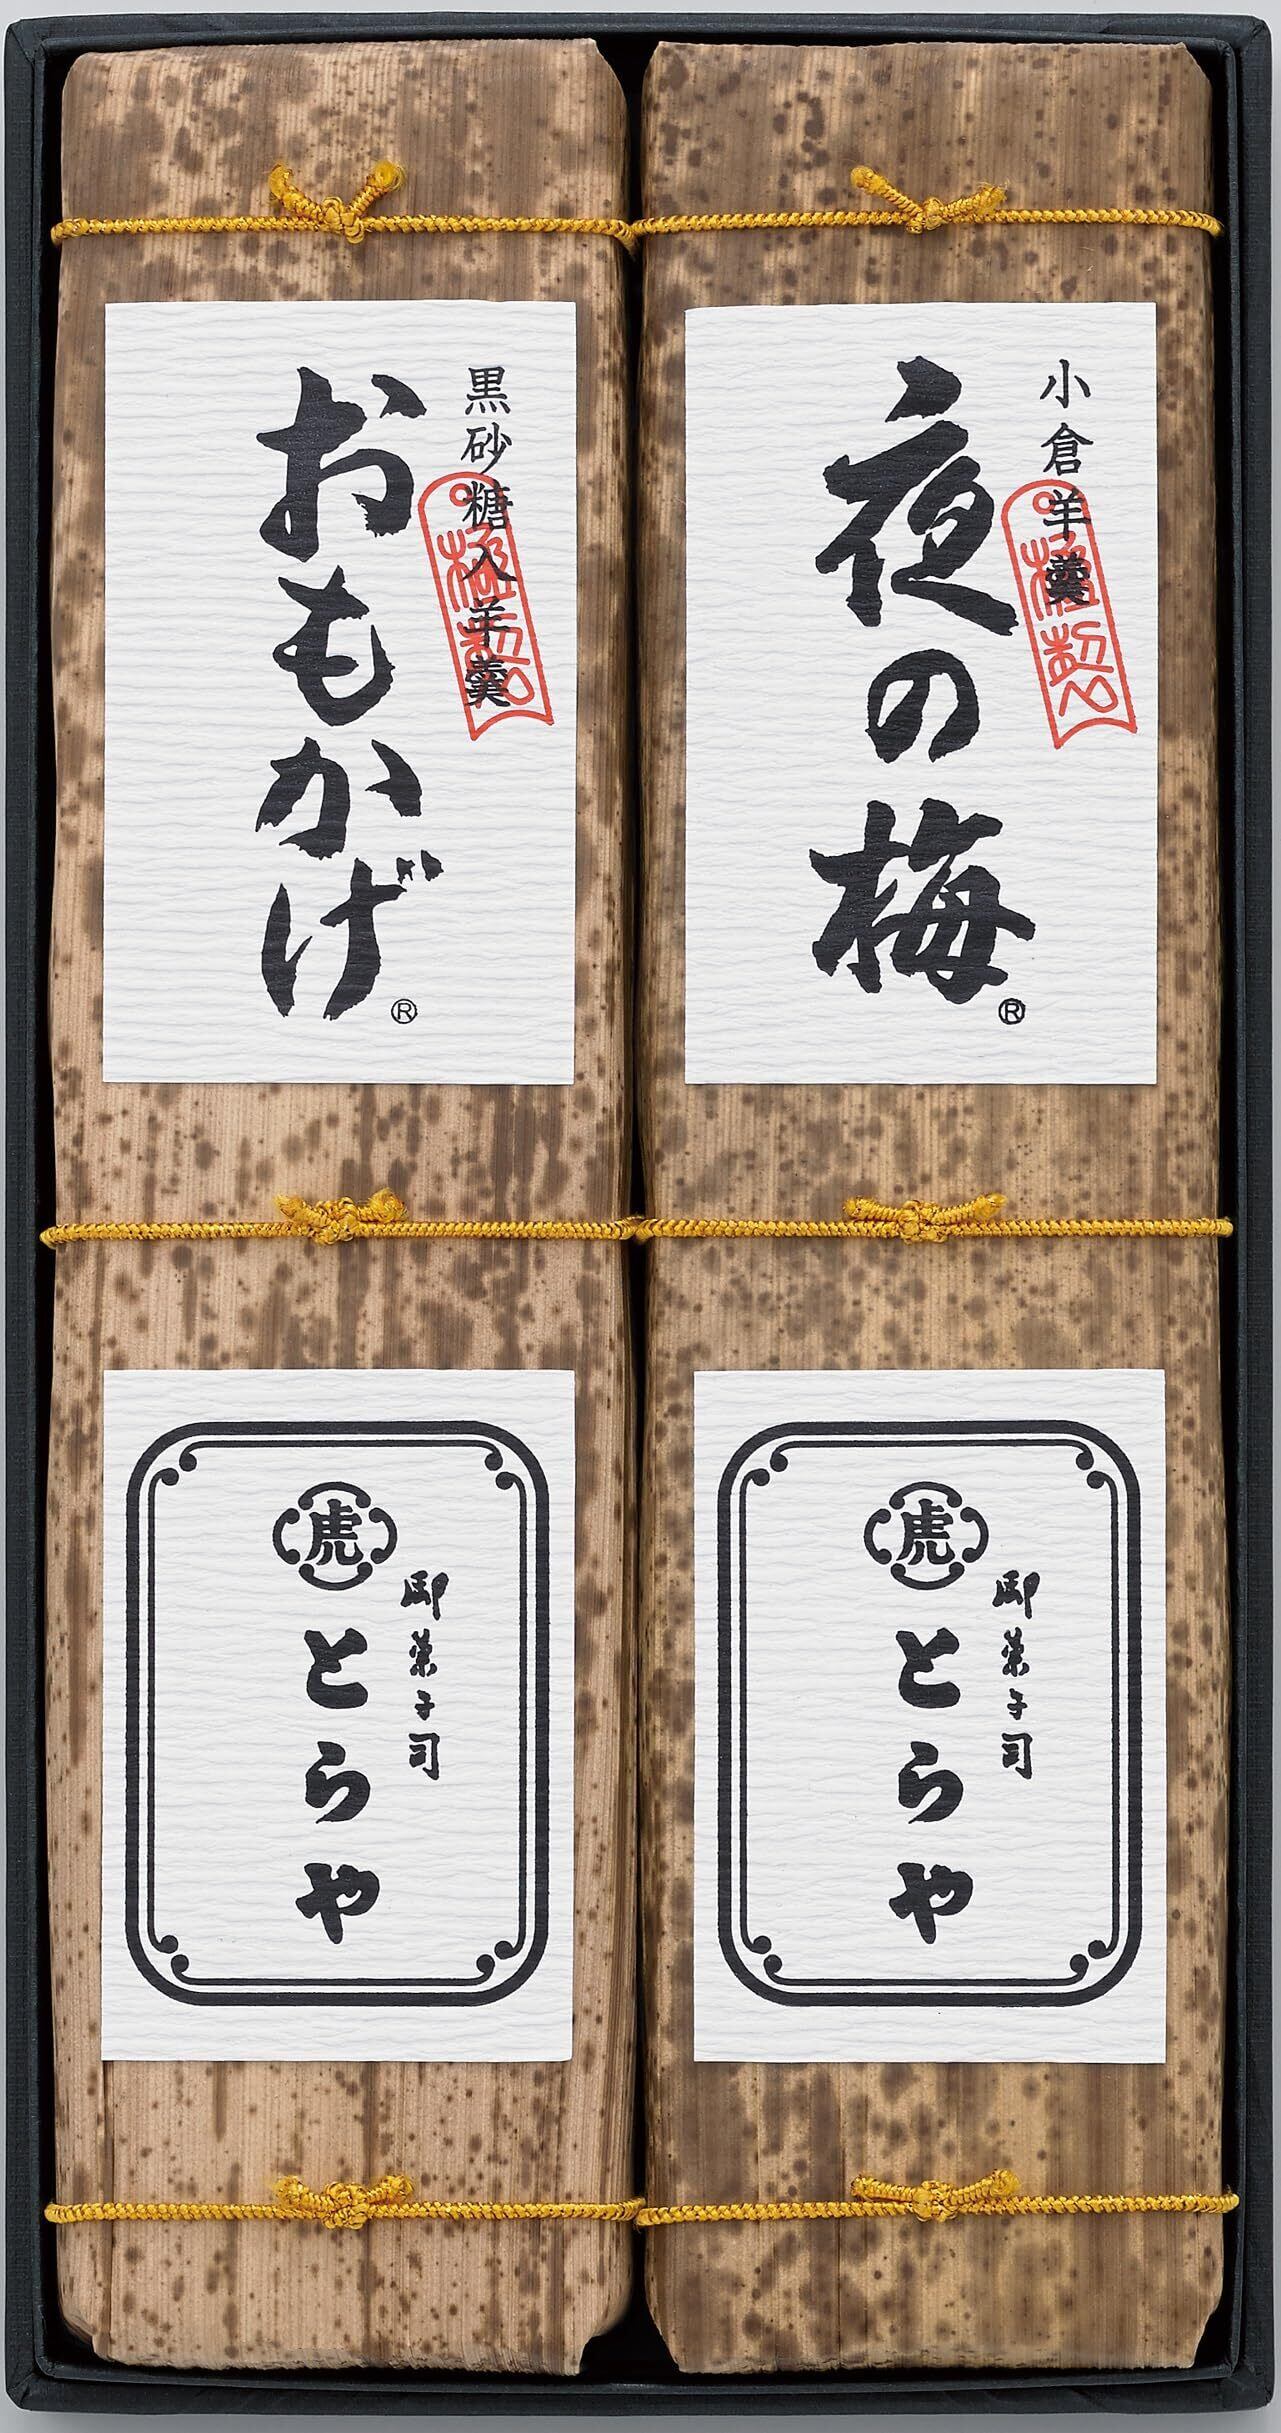 小倉羊羹
極製
夜の梅®
黒砂糖入羊羹
極製
おもかげ®
虎
御菓子司
とらや
虎
御菓子司
とらや